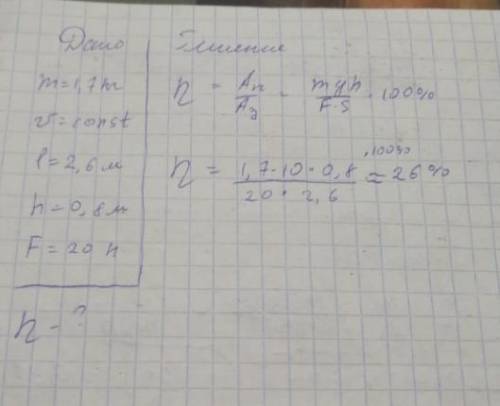 Дано
m=1,7кг
v=const
l=2,6м
h=0,8м
F=20 Н
η - ?
Решение
η = Aп/Aз = mgh/F·S · 100%
η = 1,7·10·0,8/20·2,6 · 100% ≈ 26%